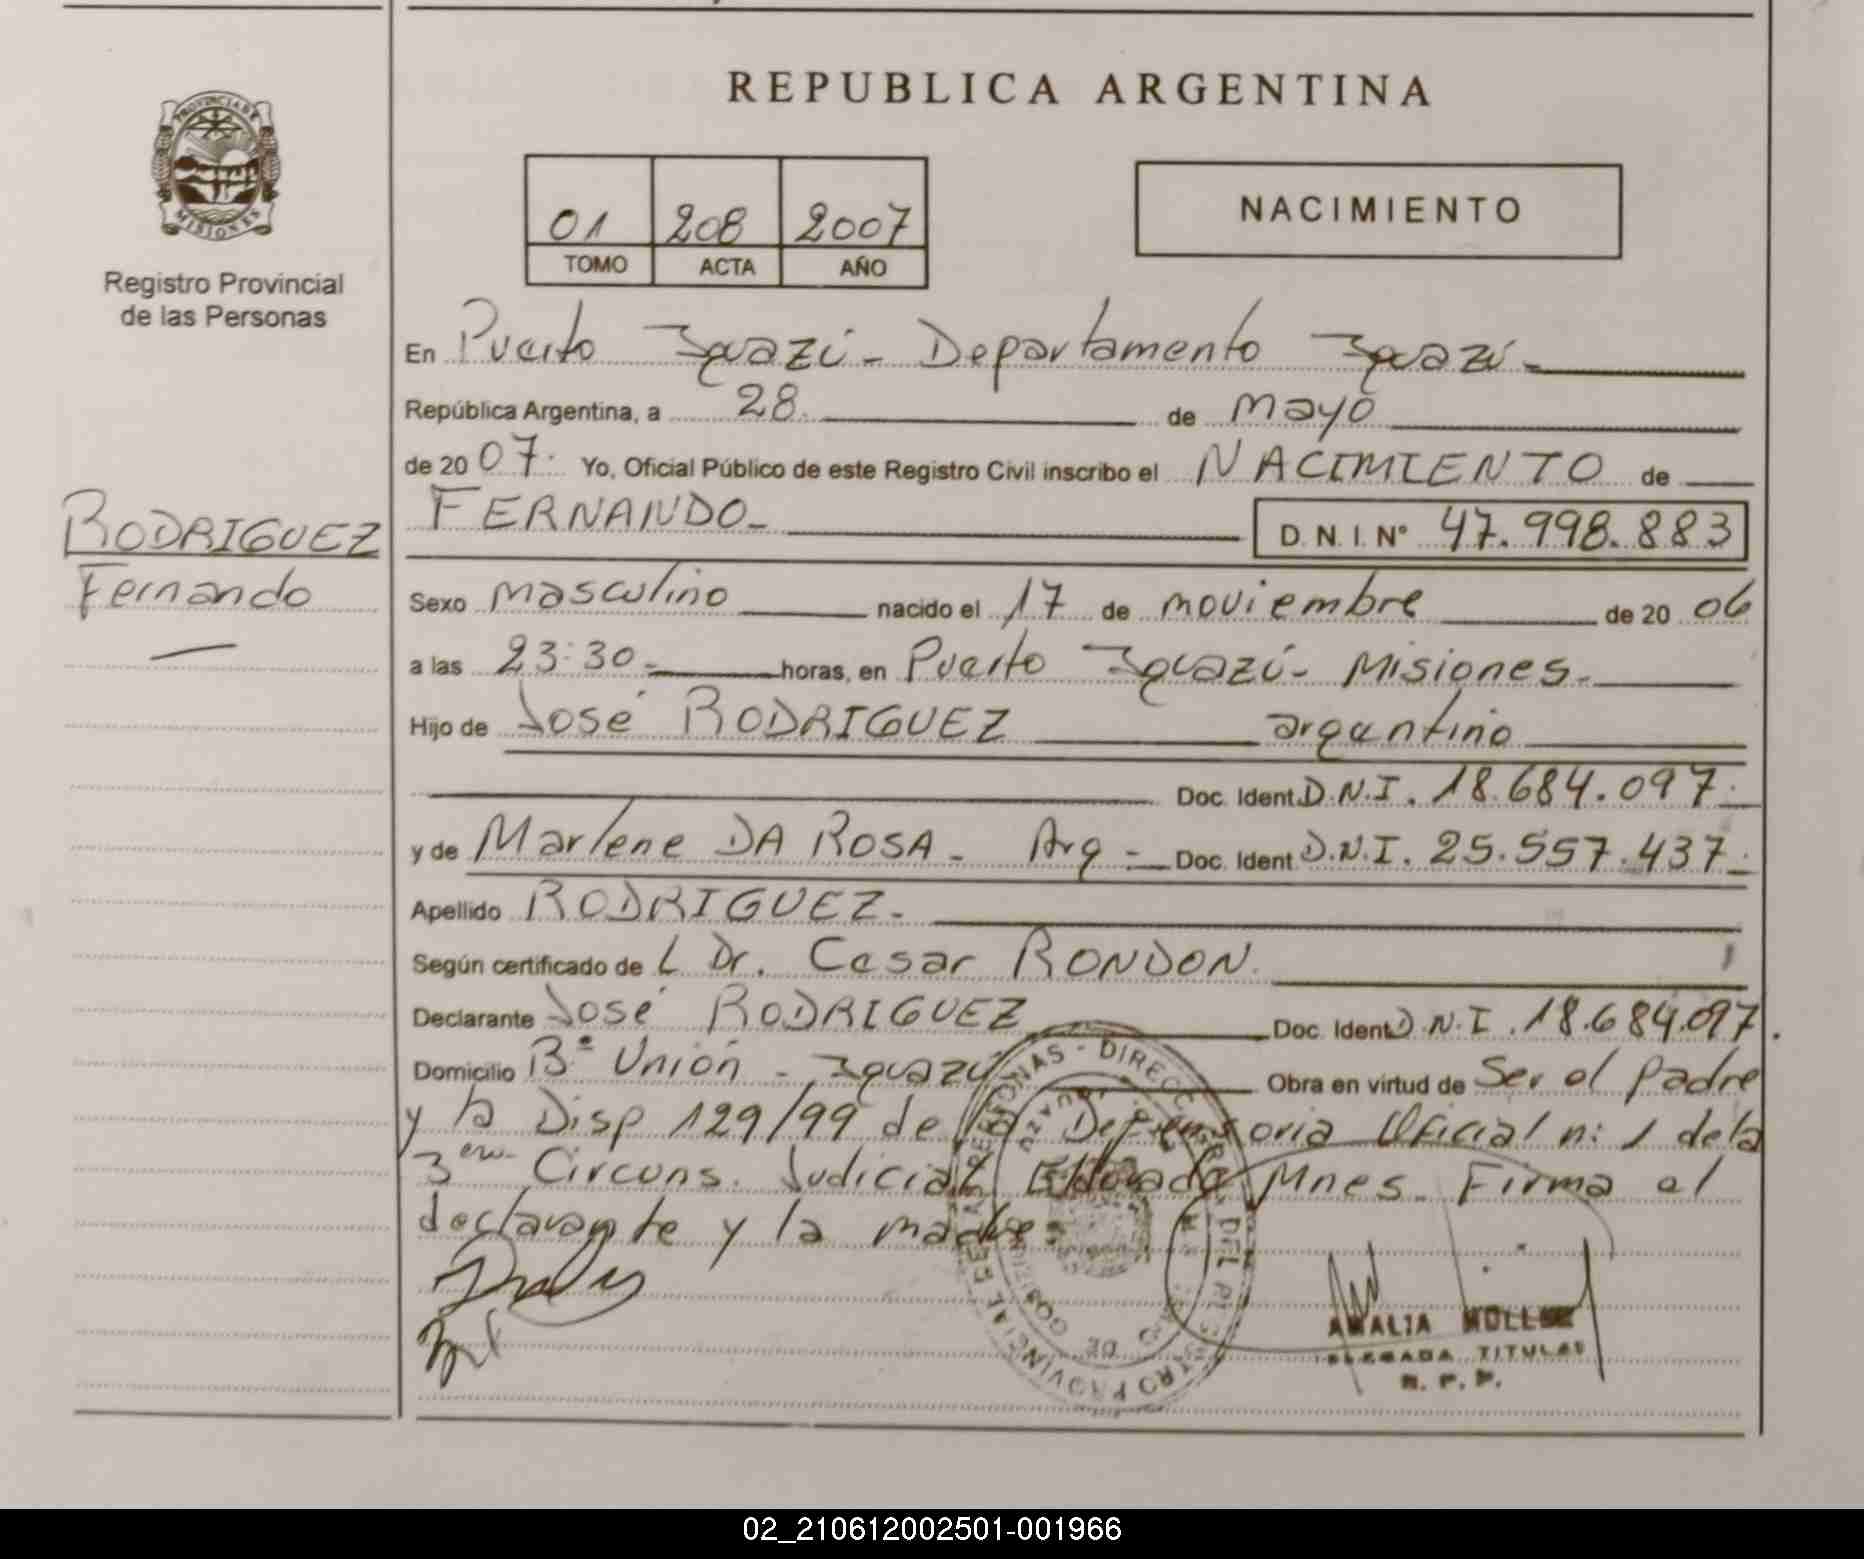 REPUBLICA ARGENTINA
PROVINCIA DE
MISIONES
Registro Provincial
de las Personas
01 208 2007
TOMO ACTA AÑO
NACIMIENTO
En Puerto Iguazú - Departamento Iguazú -
República Argentina, a 28 de mayo
de 2007. Yo, Oficial Público de este Registro Civil inscribo el NACIMIENTO de
RODRIGUEZ
Fernando
FERNANDO - D. N. I. N° 47.998.883
Sexo masculino nacido el 17 de noviembre de 2006
a las 23:30 - horas, en Puerto Iguazú - Misiones -
Hijo de José RODRIGUEZ argentino
Doc. Ident. D.N.I. 18.684.097.
y de Marlene DA ROSA - Arg - Doc. Ident. D.N.I. 25.557.437.
Apellido RODRIGUEZ -
Según certificado de L Dr. Cesar RONDON.
Declarante José RODRIGUEZ Doc. Ident. D.N.I. 18.684.097.
Domicilio B° Unión - Iguazú Obra en virtud de Ser el padre
y la Disp 129/99 de la Defensoria Oficial n: 1 de la
3era Circuns. Judicial Eldorado Mnes. Firma el
declarante y la madre
REGISTRO PROVINCIAL DE LAS PERSONAS - DIRECCION
AMALIA MOLLER
DELEGADA TITULAR
R. P. P.
02_210612002501-001966